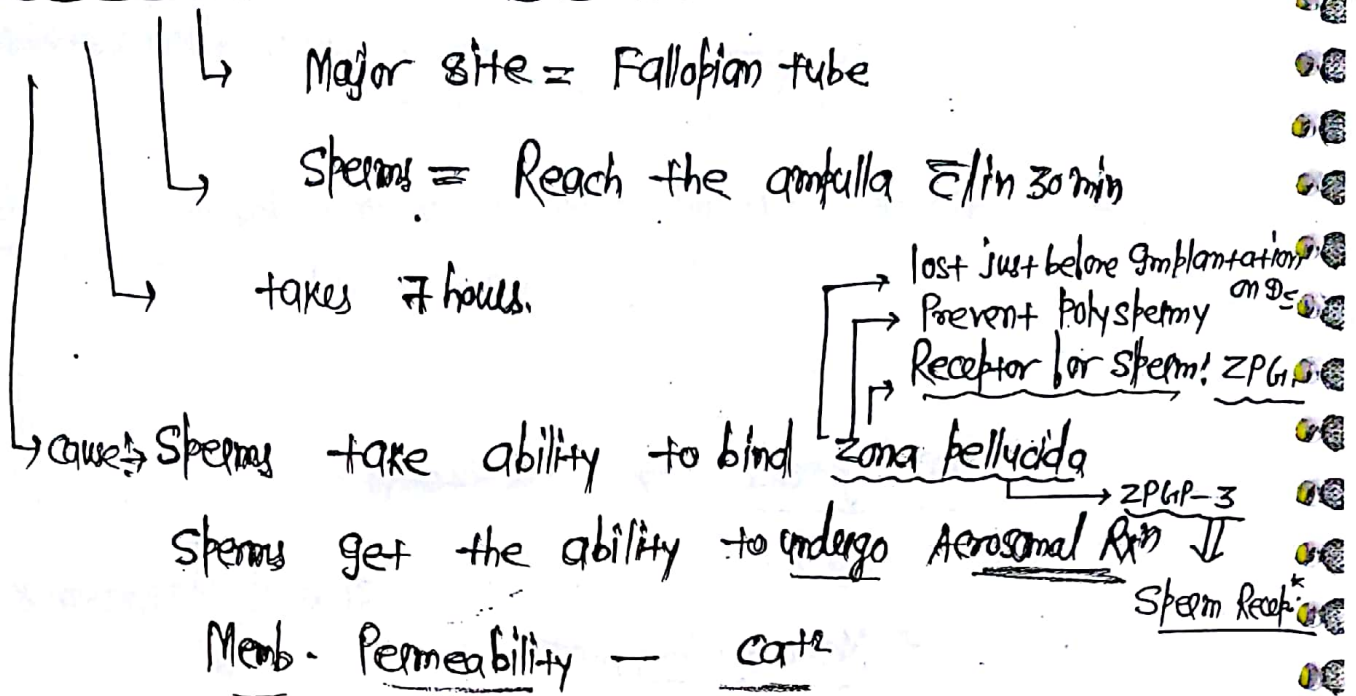 Major site = Fallopian tube
Sperms = Reach the ampulla c̄/in 30 min
takes 7 hours.
lost just before Implantation
on D5
Prevent Polyspermy
Receptor for sperm: ZPG
cause: Sperms take ability to bind zona pellucida
ZPGP-3
Sperms get the ability to undergo Acrosomal Rxn
Sperm Recep*
Memb. Permeability — Ca+2